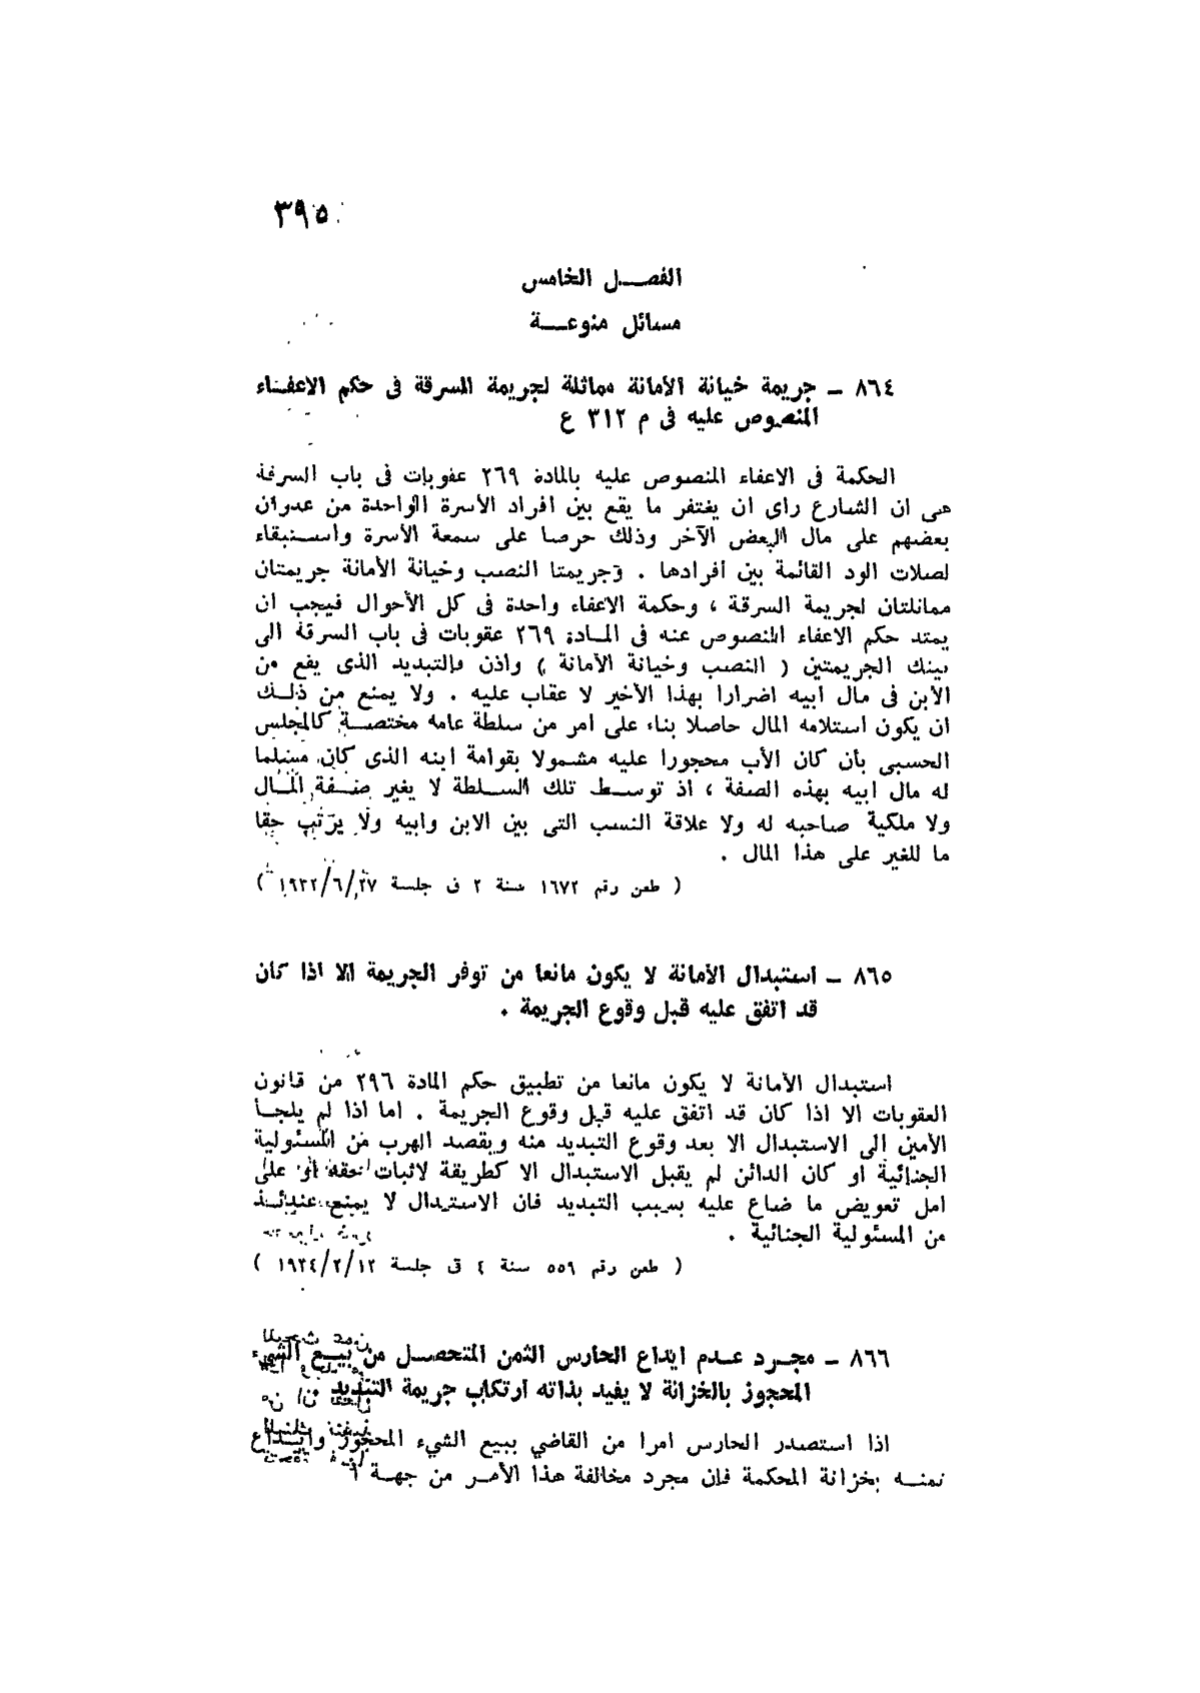 ٣٩٥
الفصل الخامس
مسائل منوعة
٨٦٤ - جريمة خيانة الأمانة مماثلة لجريمة السرقة فى حكم الاعفاء
المنصوص عليه فى م ٣١٢ ع
الحكمة فى الاعفاء المنصوص عليه بالمادة ٢٦٩ عقوبات فى باب السرقة
هى ان الشارع راى ان يغتفر ما يقع بين افراد الأسرة الواحدة من عدوان
بعضهم على مال البعض الآخر وذلك حرصا على سمعة الأسرة واستبقاء
لصلات الود القائمة بين افرادها . وجريمتا النصب وخيانة الأمانة جريمتان
مماثلتان لجريمة السرقة ، وحكمة الاعفاء واحدة فى كل الأحوال فيجب ان
يمتد حكم الاعفاء المنصوص عنه فى المادة ٢٦٩ عقوبات فى باب السرقة الى
تينك الجريمتين ( النصب وخيانة الأمانة ) واذن فالتبديد الذى يقع من
الابن فى مال ابيه اضرارا بهذا الأخير لا عقاب عليه . ولا يمنع من ذلك
ان يكون استلامه المال حاصلا بناء على امر من سلطة عامه مختصة كالمجلس
الحسبى بأن كان الأب محجورا عليه مشمولا بقوامة ابنه الذى كان مسلما
له مال ابيه بهذه الصفة ، اذ توسط تلك السلطة لا يغير صفة المال
ولا ملكية صاحبه له ولا علاقة النسب التى بين الابن وابيه ولا يرتب حقا
ما للغير على هذا المال .
( طعن رقم ١٦٧٢ سنة ٢ ق جلسة ٢٧/٦/١٩٣٢ )
٨٦٥ - استبدال الأمانة لا يكون مانعا من توفر الجريمة الا اذا كان
قد اتفق عليه قبل وقوع الجريمة .
استبدال الأمانة لا يكون مانعا من تطبيق حكم المادة ٢٩٦ من قانون
العقوبات الا اذا كان قد اتفق عليه قبل وقوع الجريمة . اما اذا لم يلجأ
الأمين الى الاستبدال الا بعد وقوع التبديد منه وبقصد الهرب من المسئولية
الجنائية او كان الدائن لم يقبل الاستبدال الا كطريقة لاثبات حقه او على
امل تعويض ما ضاع عليه بسبب التبديد فان الاستبدال لا يمنع عندئذ
من المسئولية الجنائية .
( طعن رقم ٥٥٩ سنة ٤ ق جلسة ١٢/٢/١٩٣٤ )
٨٦٦ - مجرد عدم ايداع الحارس الثمن المتحصل من بيع الشيء
المحجوز بالخزانة لا يفيد بذاته ارتكاب جريمة التبديد .
اذا استصدر الحارس امرا من القاضي ببيع الشيء المحجوز وايداع
ثمنه بخزانة المحكمة فإن مجرد مخالفة هذا الأمر من جهة